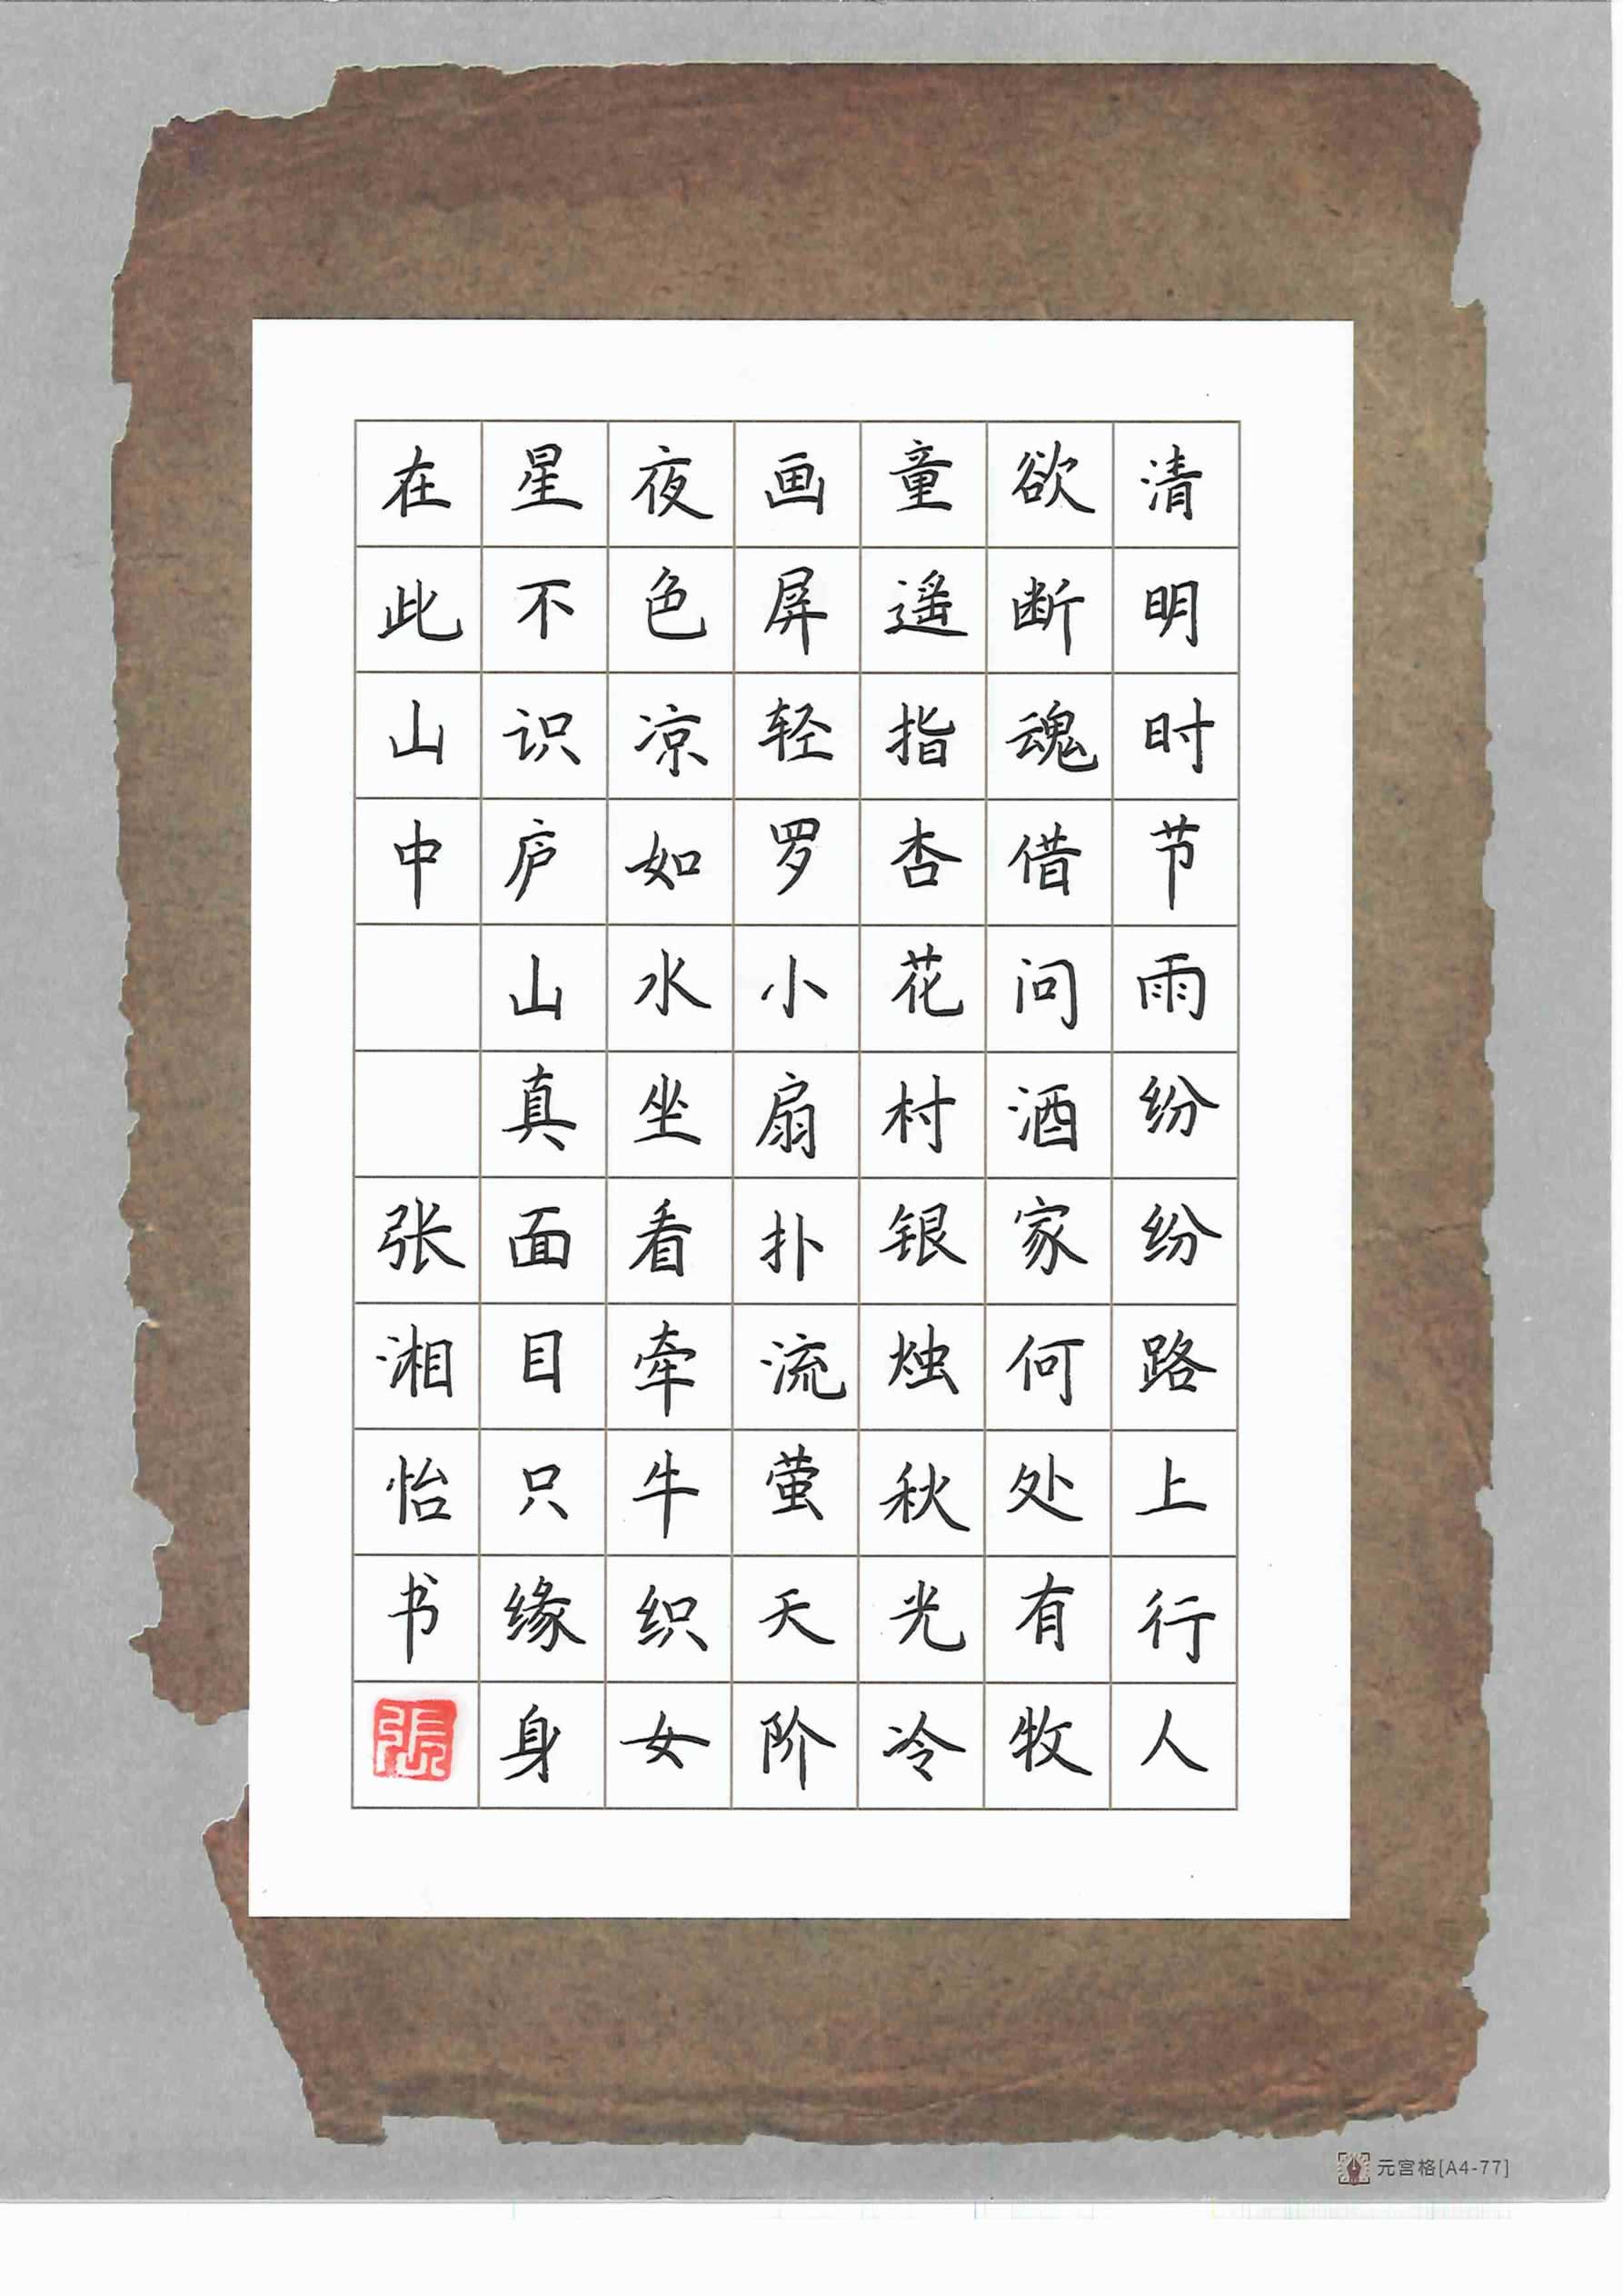 清明时节雨纷纷路上行人
欲断魂借问酒家何处有牧
童遥指杏花村银烛秋光冷
画屏轻罗小扇扑流萤天阶
夜色凉如水坐看牵牛织女
星不识庐山真面目只缘身
在此山中
张湘怡书
張
元宫格[A4-77]